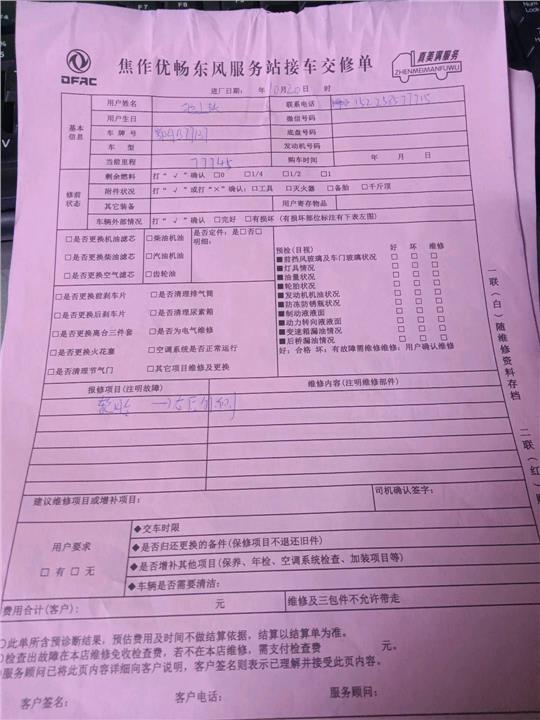 DFAC
焦作优畅东风服务站接车交修单
真美满服务
ZHENMEIMANFUWU
进厂日期: 年 10月20日 时
基本信息
用户姓名 联系电话
用户生日 微信号码
车牌号 底盘号码
车型 发动机号码
当前里程 77745 购车时间 年 月 日
修前状态
剩余燃料 打“√”确认 □0 □1/4 □1/2 □1
附件状况 打“√”或打“×”确认:□工具 □灭火器 □备胎 □千斤顶
其它装备 用户寄存物品
车辆外部情况 打“√”确认 □完好 □有损坏(有损坏部位标注有下表左图)
□是否更换机油滤芯 □柴油机油
□是否更换柴油滤芯 □汽油机油
□是否更换空气滤芯 □齿轮油
是否定件:是□否□
明细:
□是否更换前刹车片 □是否清理排气筒
□是否更换后刹车片 □是否清理尿素箱
□是否更换离合三件套 □是否为电气维修
□是否更换火花塞 □空调系统是否正常运行
□是否清理节气门 □其它项目维修及更换
预检(目视) 好 坏 维修
■前挡风玻璃及车门玻璃状况 □ □ □
■灯具情况 □ □ □
■油量状况 □ □ □
■轮胎状况 □ □ □
■发动机机油状况 □ □ □
■防冻防锈瓶状况 □ □ □
■制动液液面 □ □ □
■动力转向液液面 □ □ □
■变速箱漏油情况 □ □ □
■后桥漏油情况 □ □ □
好:合格 坏:有故障需维修维修:用户确认维修
报修项目(注明故障) 维修内容(注明维修部件)
建议维修项目或增补项目: 司机确认签字:
用户要求
□有 □无
◆交车时限
◆是否归还更换的备件(保修项目不退还旧件)
◆是否增补其他项目(保养、年检、空调系统检查、加装项目等)
◆车辆是否需要清洁:
费用合计(客户): 元 维修及三包件不允许带走
○此单所含预诊断结果,预估费用及时间不做结算依据,结算以结算单为准。
○检查出故障在本店维修免收检查费,若不在本店维修,需支付检查费 元。
服务顾问已将此页内容详细向客户说明,客户签名则表示已理解并接受此页内容。
客户签名: 客户电话: 服务顾问:
一联(白)随维修资料存档
二联(红)